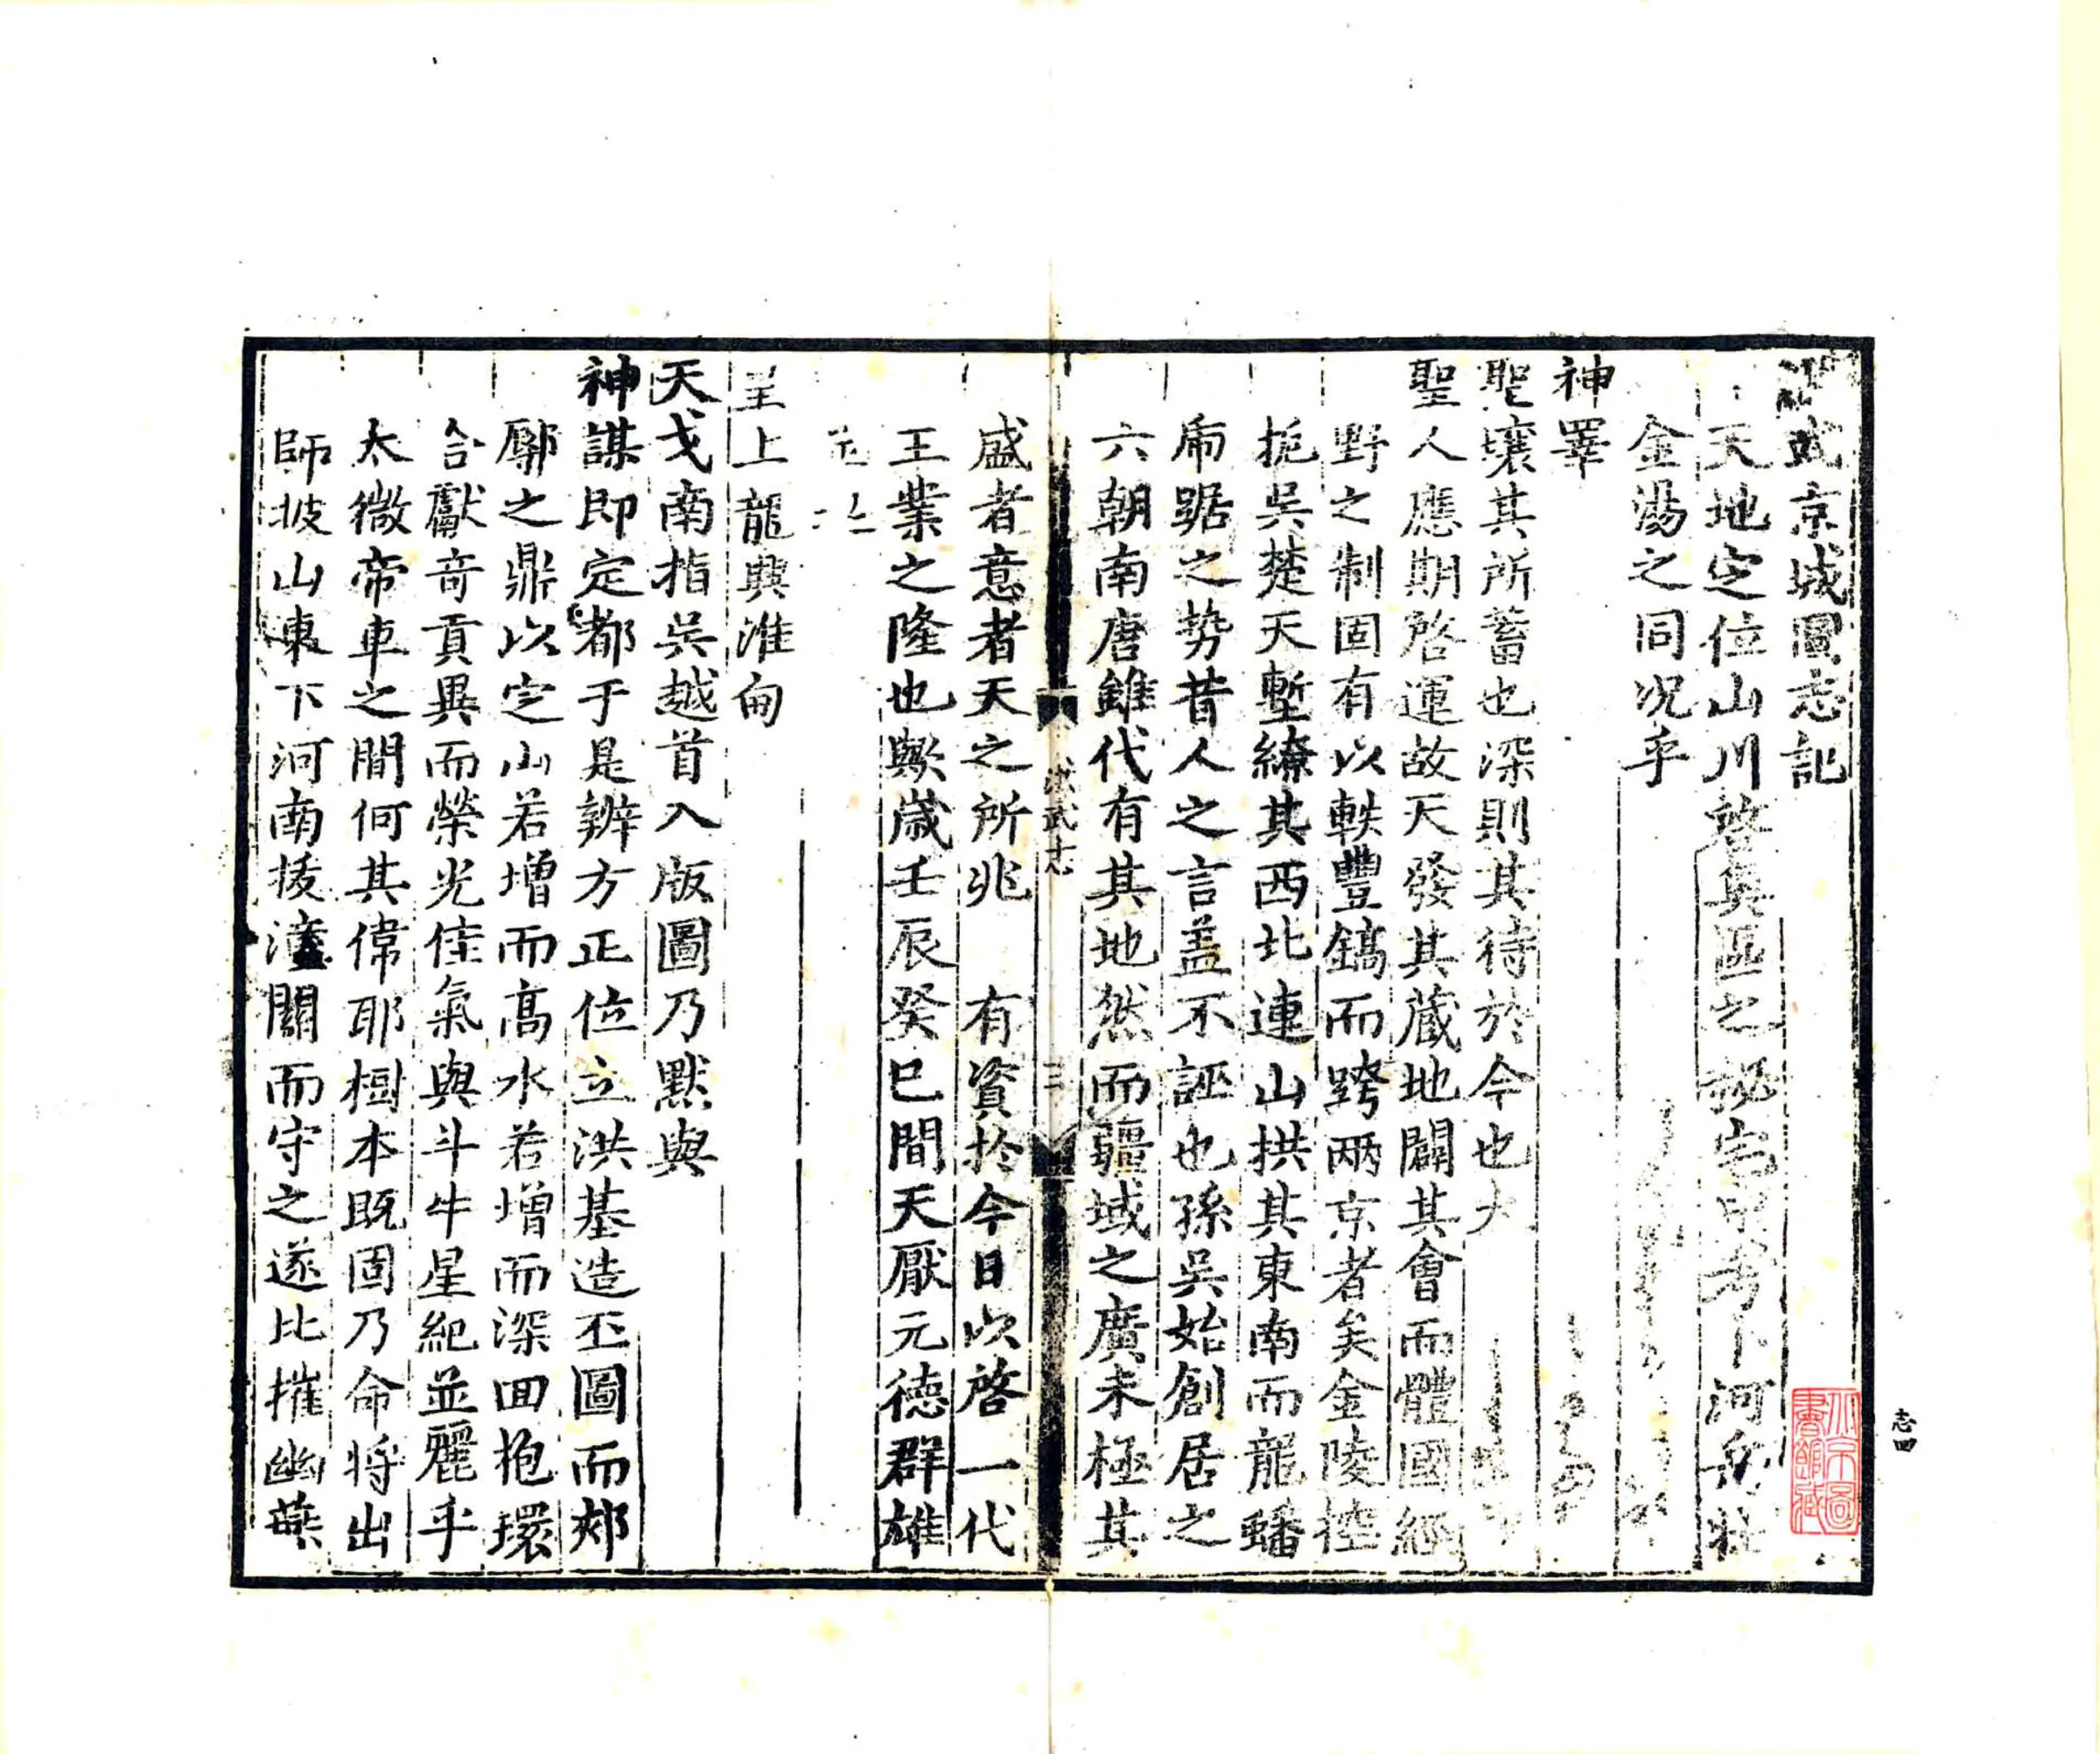 洪武京城圖志記
天地定位山川啓奧區之秘 河岳壯
金湯之同况乎
神睪
聖壤其所蓄也深則其待於今也大
聖人應期啓運故天發其藏地闢其會而體國經
野之制固有以軼豐鎬而跨兩京者矣金陵控
扼吳楚天塹繚其西北連山拱其東南而龍蟠
虎踞之勢昔人之言盖不誣也孫吳始創居之
六朝南唐雖代有其地然而疆域之廣未極其
洪武志 三
盛者意者天之所兆 有資於今日以啓一代
王業之隆也歟歲壬辰癸巳間天厭元德群雄
並
皇上龍興淮甸
天戈南指吳越首入版圖乃默與
神謀即定都于是辨方正位立洪基造丕圖而郟
鄏之鼎以定山若增而高水若增而深回抱環
合獻竒貢異而榮光佳氣與斗牛星紀並麗乎
太微帝車之間何其偉耶樹本既固乃命將出
師披山東下河南扼潼關而守之遂比摧幽燕
志四
北京圖書館藏